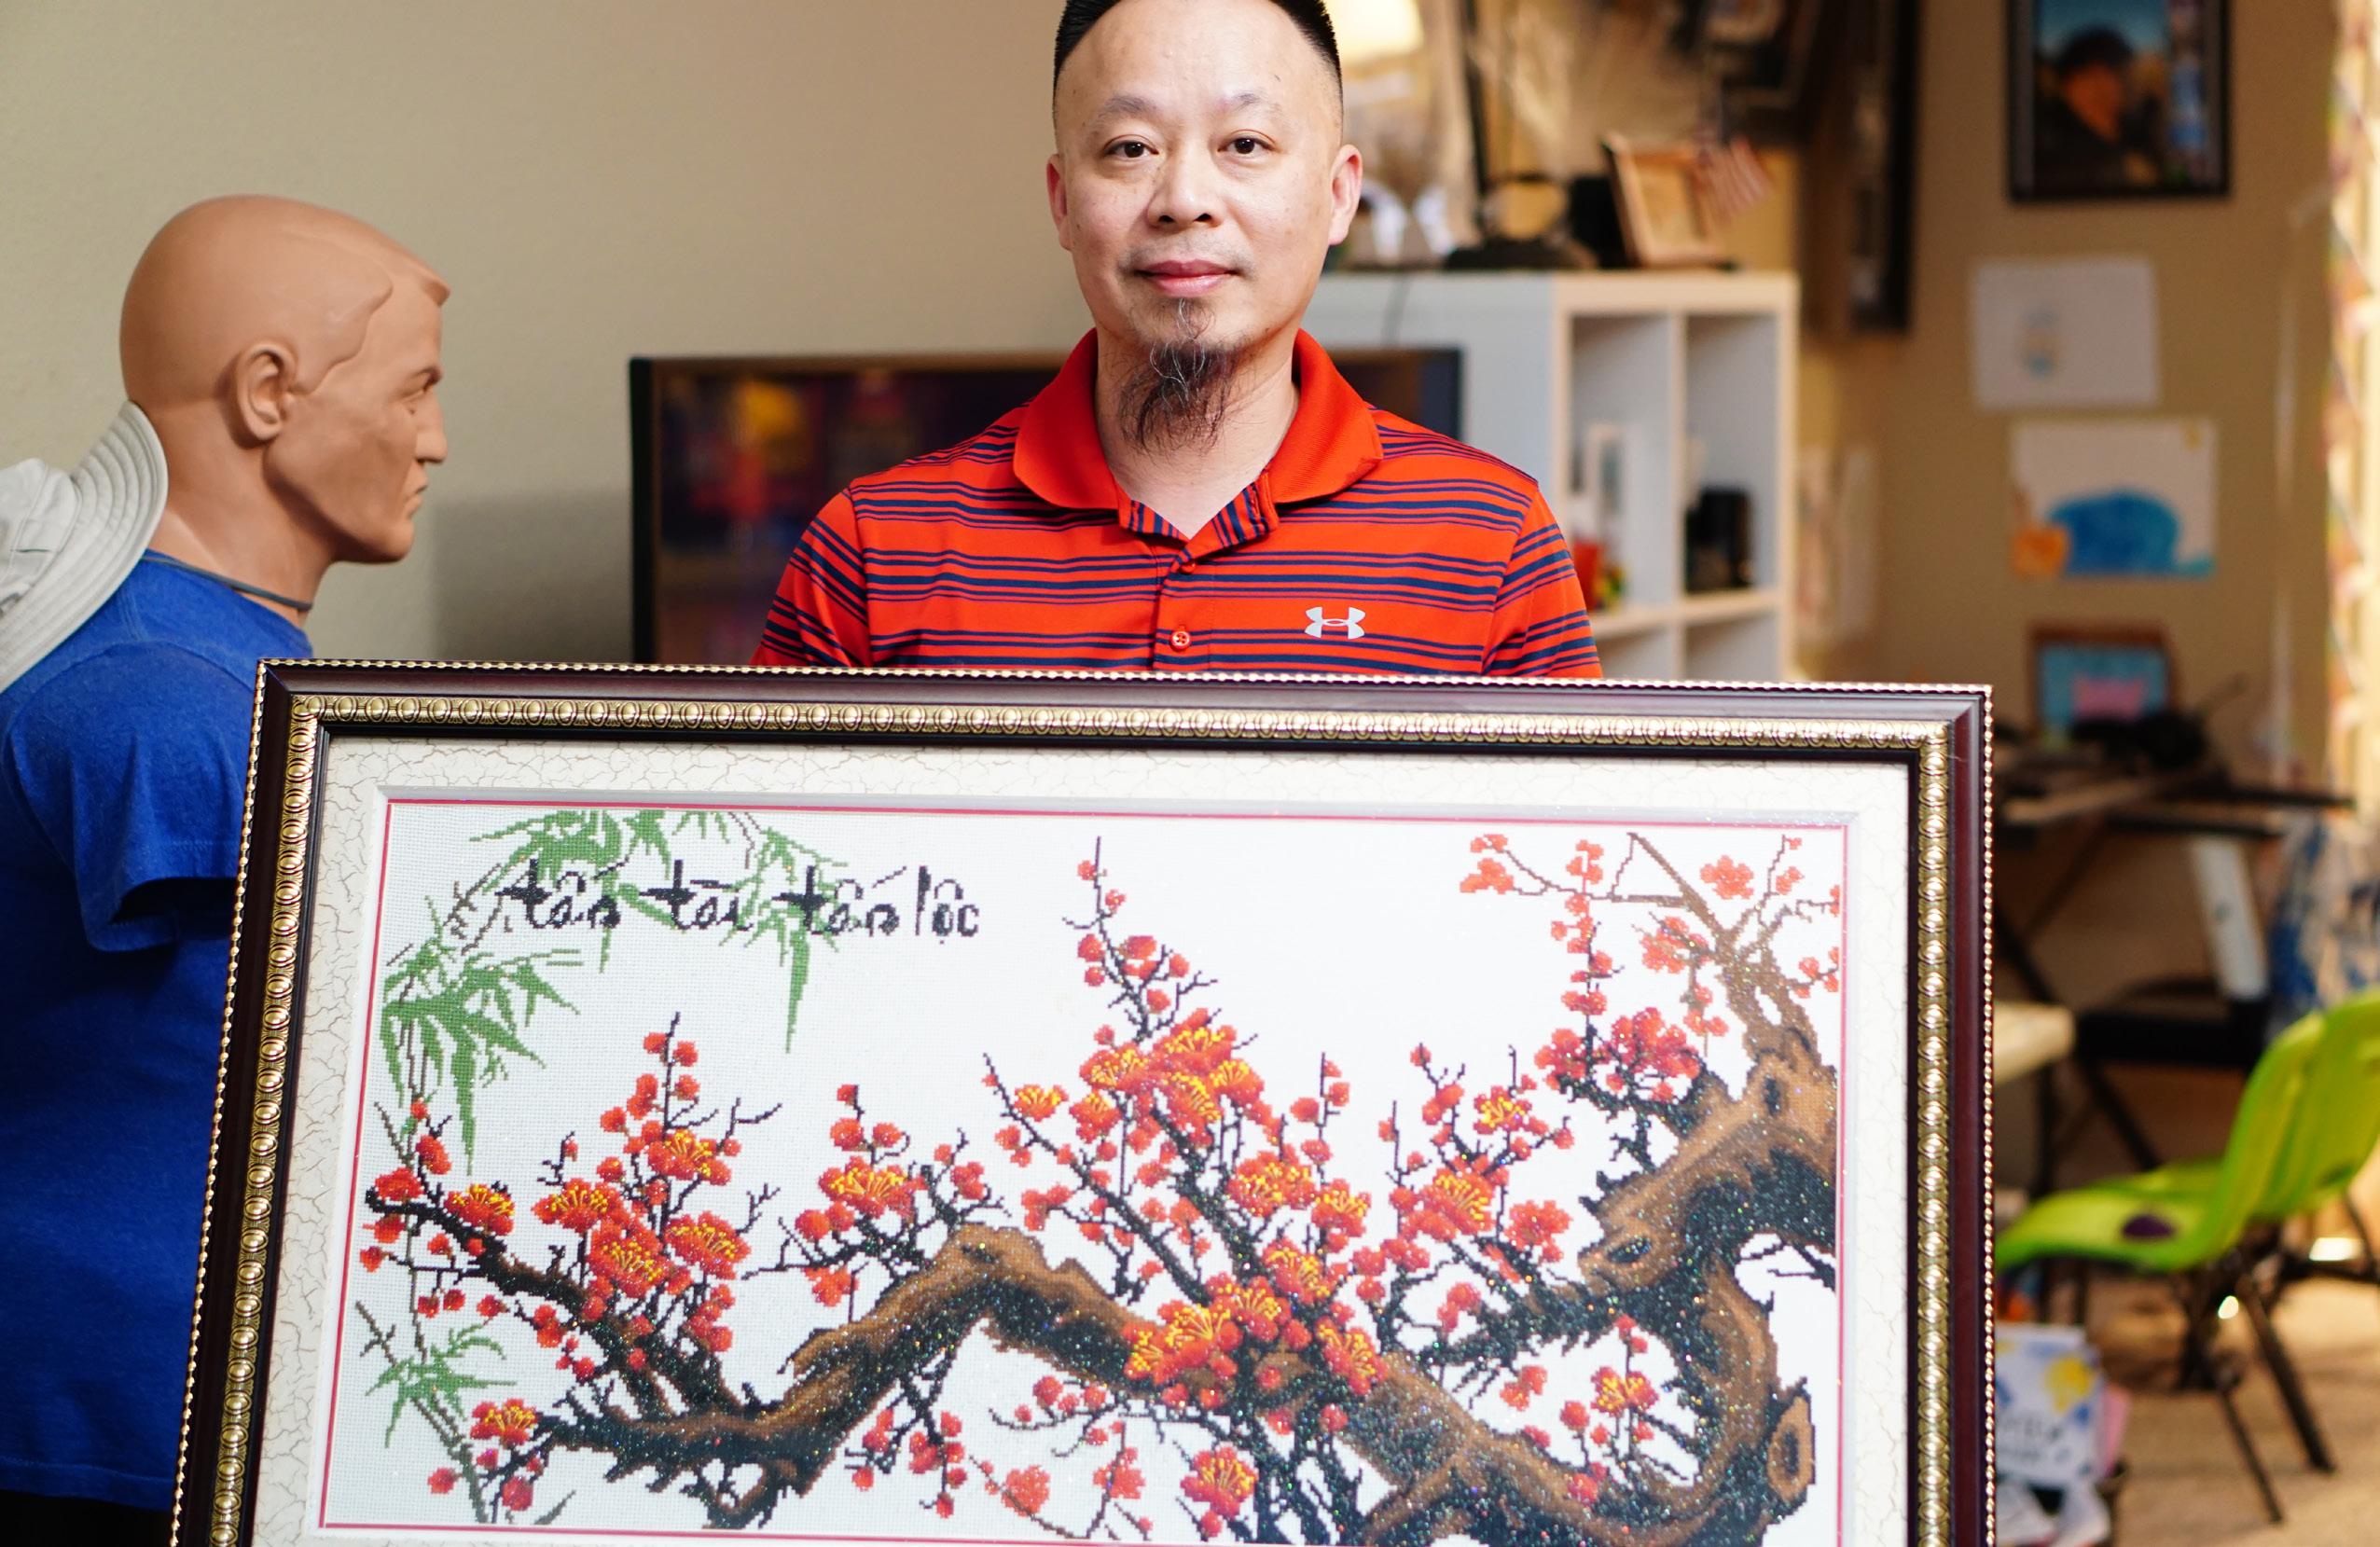 tấn tài tấn lộc